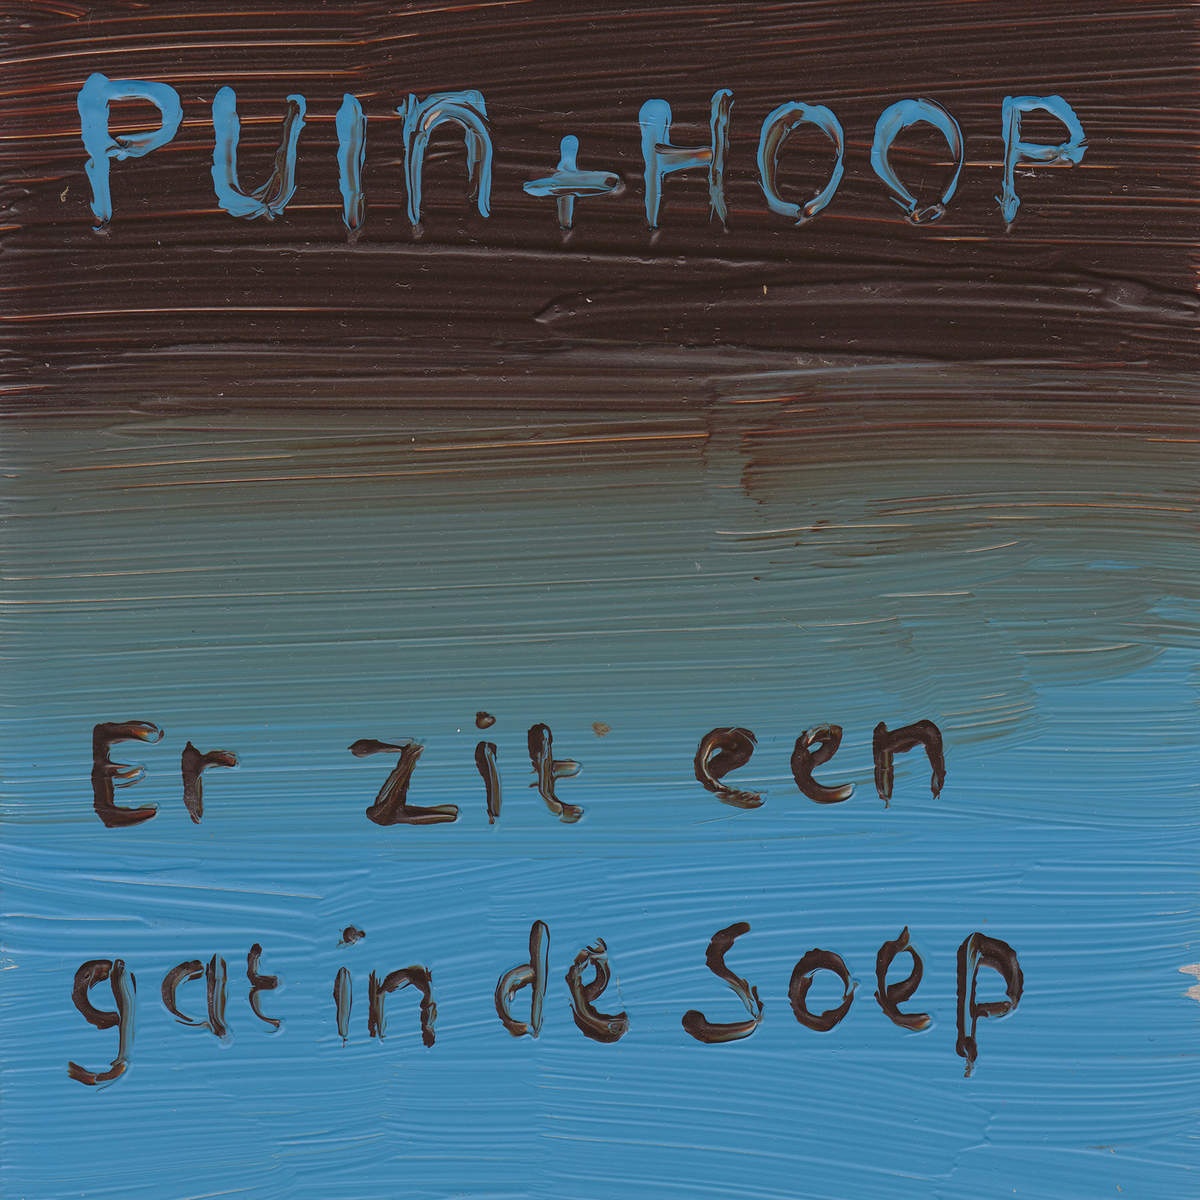 PUIN+HOOP
Er zit een
gat in de Soep